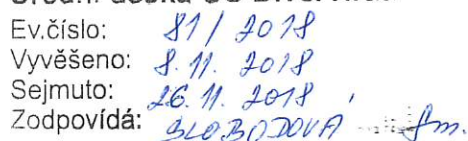 Ev.číslo: 81/2018
Vyvěšeno: 8.11.2018
Sejmuto: 26.11.2018
Zodpovídá: SLOBODOVÁ